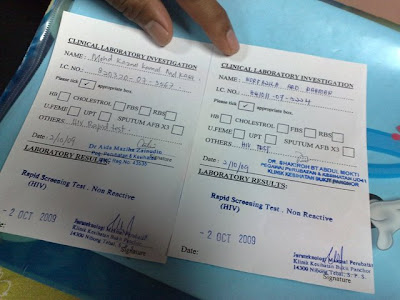 CLINICAL LABORATORY INVESTIGATION
NAME: Mohd Kosmo Kamal
I.C. NO.:
Please tick ✓ appropriate box.
HB CHOLESTROL FBS RBS
U.FEME UPT SPUTUM AFB X3
Others: HIV Rapid test.
Date: 2/10/09
Dr Aida Mazlina Zainudin
Signature
LABORATORY RESULTS:
Rapid Screening Test . Non Reactive
(HIV)
- 2 OCT 2009
Juruteknologi Makmal Perubatan
Klinik Kesihatan Bukit Panchor
14300 Nibong Tebal
Signature
CLINICAL LABORATORY INVESTIGATION
NAME:
I.C. NO.:
Please tick ✓ appropriate box.
HB CHOLESTROL FBS RBS
U.FEME UPT SPUTUM AFB X3
Others: HIV TEST
Date: 2/10/09
DR SHAKIROH BT ABDUL MOKTI
PEGAWAI PERUBATAN & KESIHATAN UD41
KLINIK KESIHATAN BUKIT PANCHOR
LABORATORY RESULTS:
Rapid Screening Test . Non Reactive
(HIV)
- 2 OCT 2009
Juruteknologi Makmal Perubatan
Klinik Kesihatan Bukit Panchor
14300 Nibong Tebal. S. P. S.
Signature